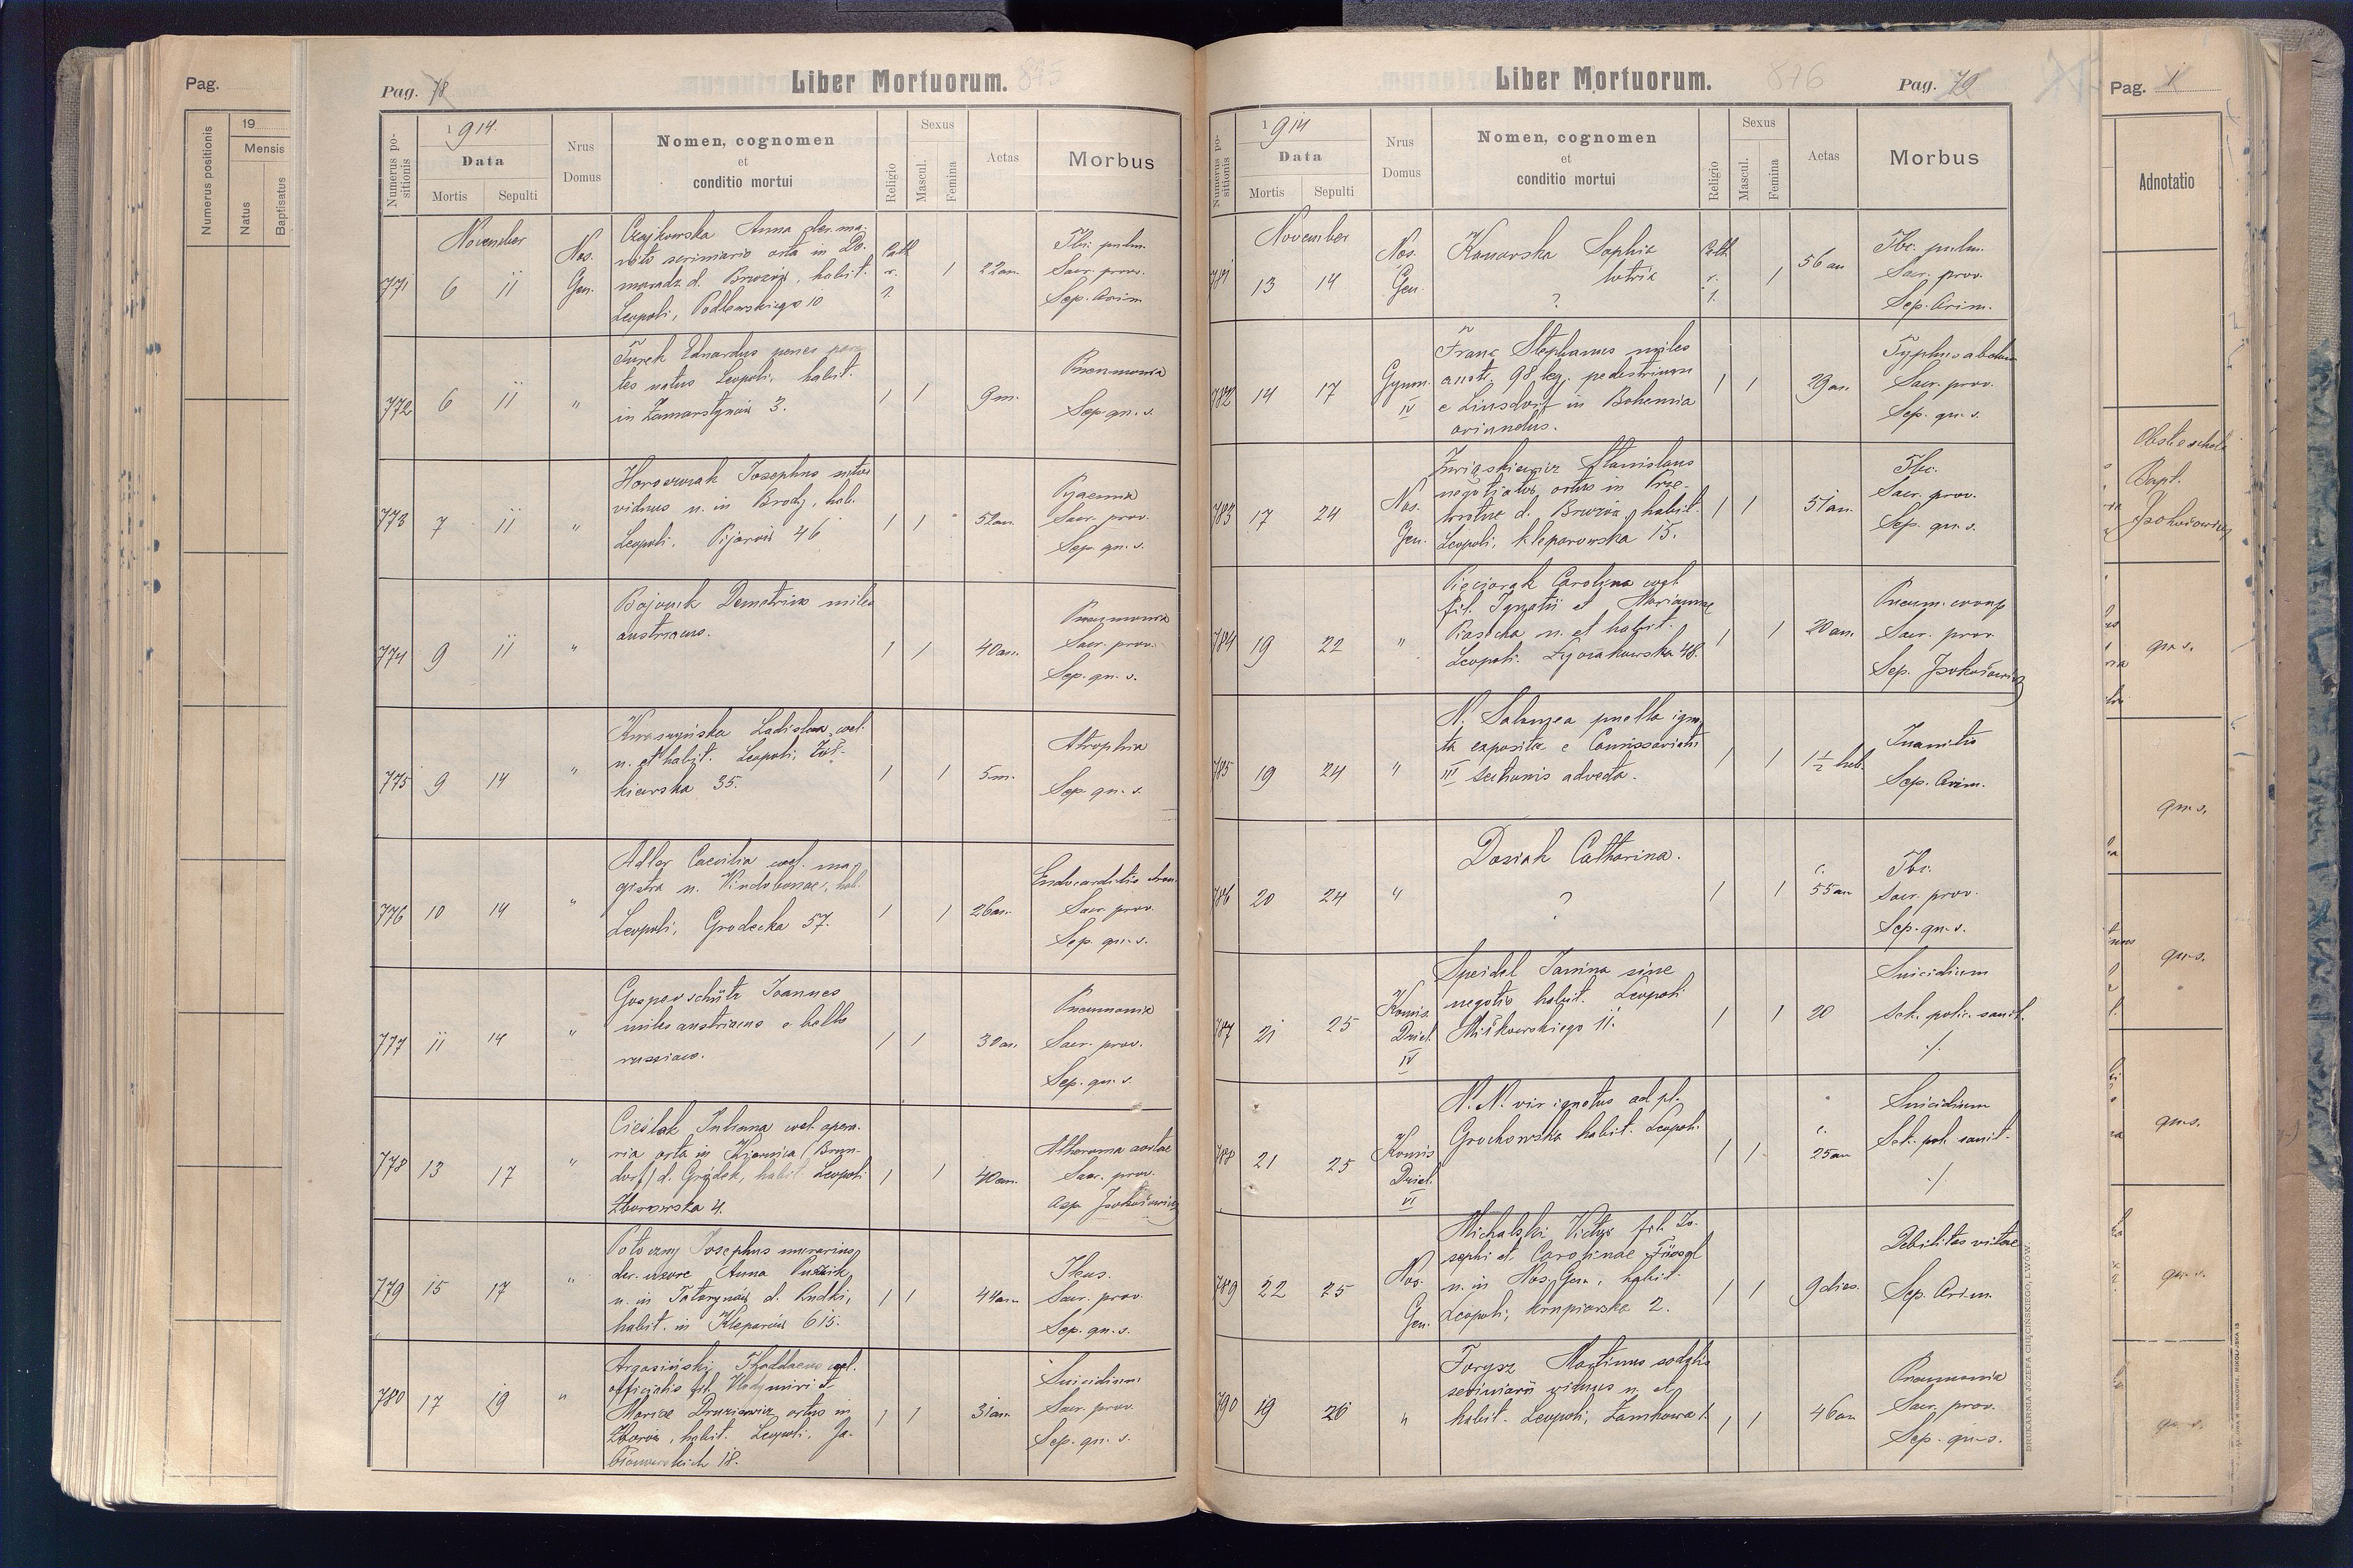 Pag.
Numerus positionis
19
Mensis
Natus
Baptisatus
Pag. 78
Liber Mortuorum.
Numerus positionis
1914.
Data
Mortis
Sepulti
Nrus
Domus
Nomen, cognomen
et
conditio mortui
Religio
Sexus
Mascul.
Femina
Aetas
Morbus
November
771
6
11
Nos.
Gen.
Czajkowska Anna
orta in Do-
maradz d. habit.
Leopoli, Podlewskiego 10
Cath
r.
1
22 an.
Tbc. pulm.
Sacr. prov.
Sep. Arim.
772
6
11
"
Turek Eduardus penes paren
tes natus Leopoli, habit.
in Zamarstynów 3.
1
1
9 m.
Pneumonia
Sep. qu. s.
773
7
11
"
Josephus sutor
viduus n. in Brody, hab.
Leopoli, Pijarów 46
1
1
52 an.
Pyaemia
Sacr. prov.
Sep. qu. s.
774
9
11
"
Demetrius miles
austriacus.
1
1
40 an.
Pneumonia
Sacr. prov.
Sep. qu. s.
775
9
14
"
Ladislava coel.
n. et habit. Leopoli, Żół-
kiewska 35.
1
1
5 m.
Atrophia
Sep. qu. s.
776
10
14
"
Adler Caecilia coel. ma-
gistra n. Vindobonae, hab.
Leopoli, Grodecka 57.
1
1
26 an.
Endocarditis chron.
Sacr. prov.
Sep. qu. s.
777
11
14
"
Joannes
miles austriacus e bello
1
1
30 an.
Pneumonia
Sacr. prov.
Sep. qu. s.
778
13
17
"
Cieślak Juliana coel. opera-
ria orta in Kiernica (Brun-
dorf) d. Gródek, habit. Leopoli
Zborowska 4.
1
1
40 an.
Atheroma aortae
Sacr. prov.
779
15
17
"
Potoczny Josephus murarius
der. uxore Anna
n. in d. Rudki,
habit. in Kleparów 615.
1
1
44 an.
Ileus.
Sacr. prov.
Sep. qu. s.
780
17
19
"
Argasiński Thaddaeus coel.
officialis fil. Vladimiri et
Mariae ortus in
Zborów, habit. Leopoli, Ja-
błonowskich 18.
1
1
31 an.
Suicidium
Sacr. prov.
Sep. qu. s.
Liber Mortuorum.
876
Pag. 79
Numerus positionis
1914
Data
Mortis
Sepulti
Nrus
Domus
Nomen, cognomen
et
conditio mortui
Religio
Sexus
Mascul.
Femina
Aetas
Morbus
November
781
13
14
Nos.
Gen.
Konarska Sophia
lotrix
?
Cath
r.
1
56 an
Tbc. pulm.
Sacr. prov.
Sep. Arim.
782
14
17
Gymn.
IV
Franc Stephanus miles
austr. 98 leg. pedestrium
e Linsdorf in Bohemia
oriundus.
1
1
29 an.
Typhus abdom
Sacr. prov.
Sep. qu. s.
783
17
24
Nos.
Gen.
Stanislaus
negotiator ortus in
habit.
Leopoli, Kleparowska 15.
1
1
51 an.
Tbc.
Sacr. prov.
Sep. qu. s.
784
19
22
"
Pięciorak Carolina coel.
fil. Ignatii et Mariannae
n. et habit.
Leopoli. Łyczakowska 48.
1
1
20 an.
Pneum. croup
Sacr. prov.
785
19
24
"
N. Salomea puella igno
ta exposita e Comissariatu
III sectionis advecta.
1
1
1 1/2 heb.
Inanitio
Sep. Arim.
786
20
24
"
Dosiak Catharina.
?
1
1
c.
55 an
Tbc.
Sacr. prov.
Sep. qu. s.
787
21
25
Komis.
Dziel.
IV
Speidel Janina sine
negotio habit. Leopoli
11.
1
1
20
Suicidium
Sek. polic. sanit.
./.
788
21
25
Komis
Dziel.
VI
N. N. vir ignotus ad pl.
Grochowska habit. Leopoli
1
1
c.
25 an
Suicidium
Sek. poli. sanit.
./.
789
22
25
Nos.
Gen.
Michalski Victor fil. Jo-
sephi et Carolinae
n. in Nos. Gen., habit.
Leopoli, Krupiarska 2.
1
1
9 dies.
Debilitas vitae
Sep. Arim.
790
19
26
"
Torysz Martinus sodalis
scriniarii viduus n. et
habit. Leopoli, Zamkowa 1.
1
1
46 an
Pneumonia
Sacr. prov.
Sep. qu. s.
DRUKARNIA JÓZEFA CHĘCIŃSKIEGO, LWÓW.
Pag. 1
Adnotatio
Bapt.
qu. s.
qu. s.
qu. s.
qu. s.
qu. s.
qu. s.